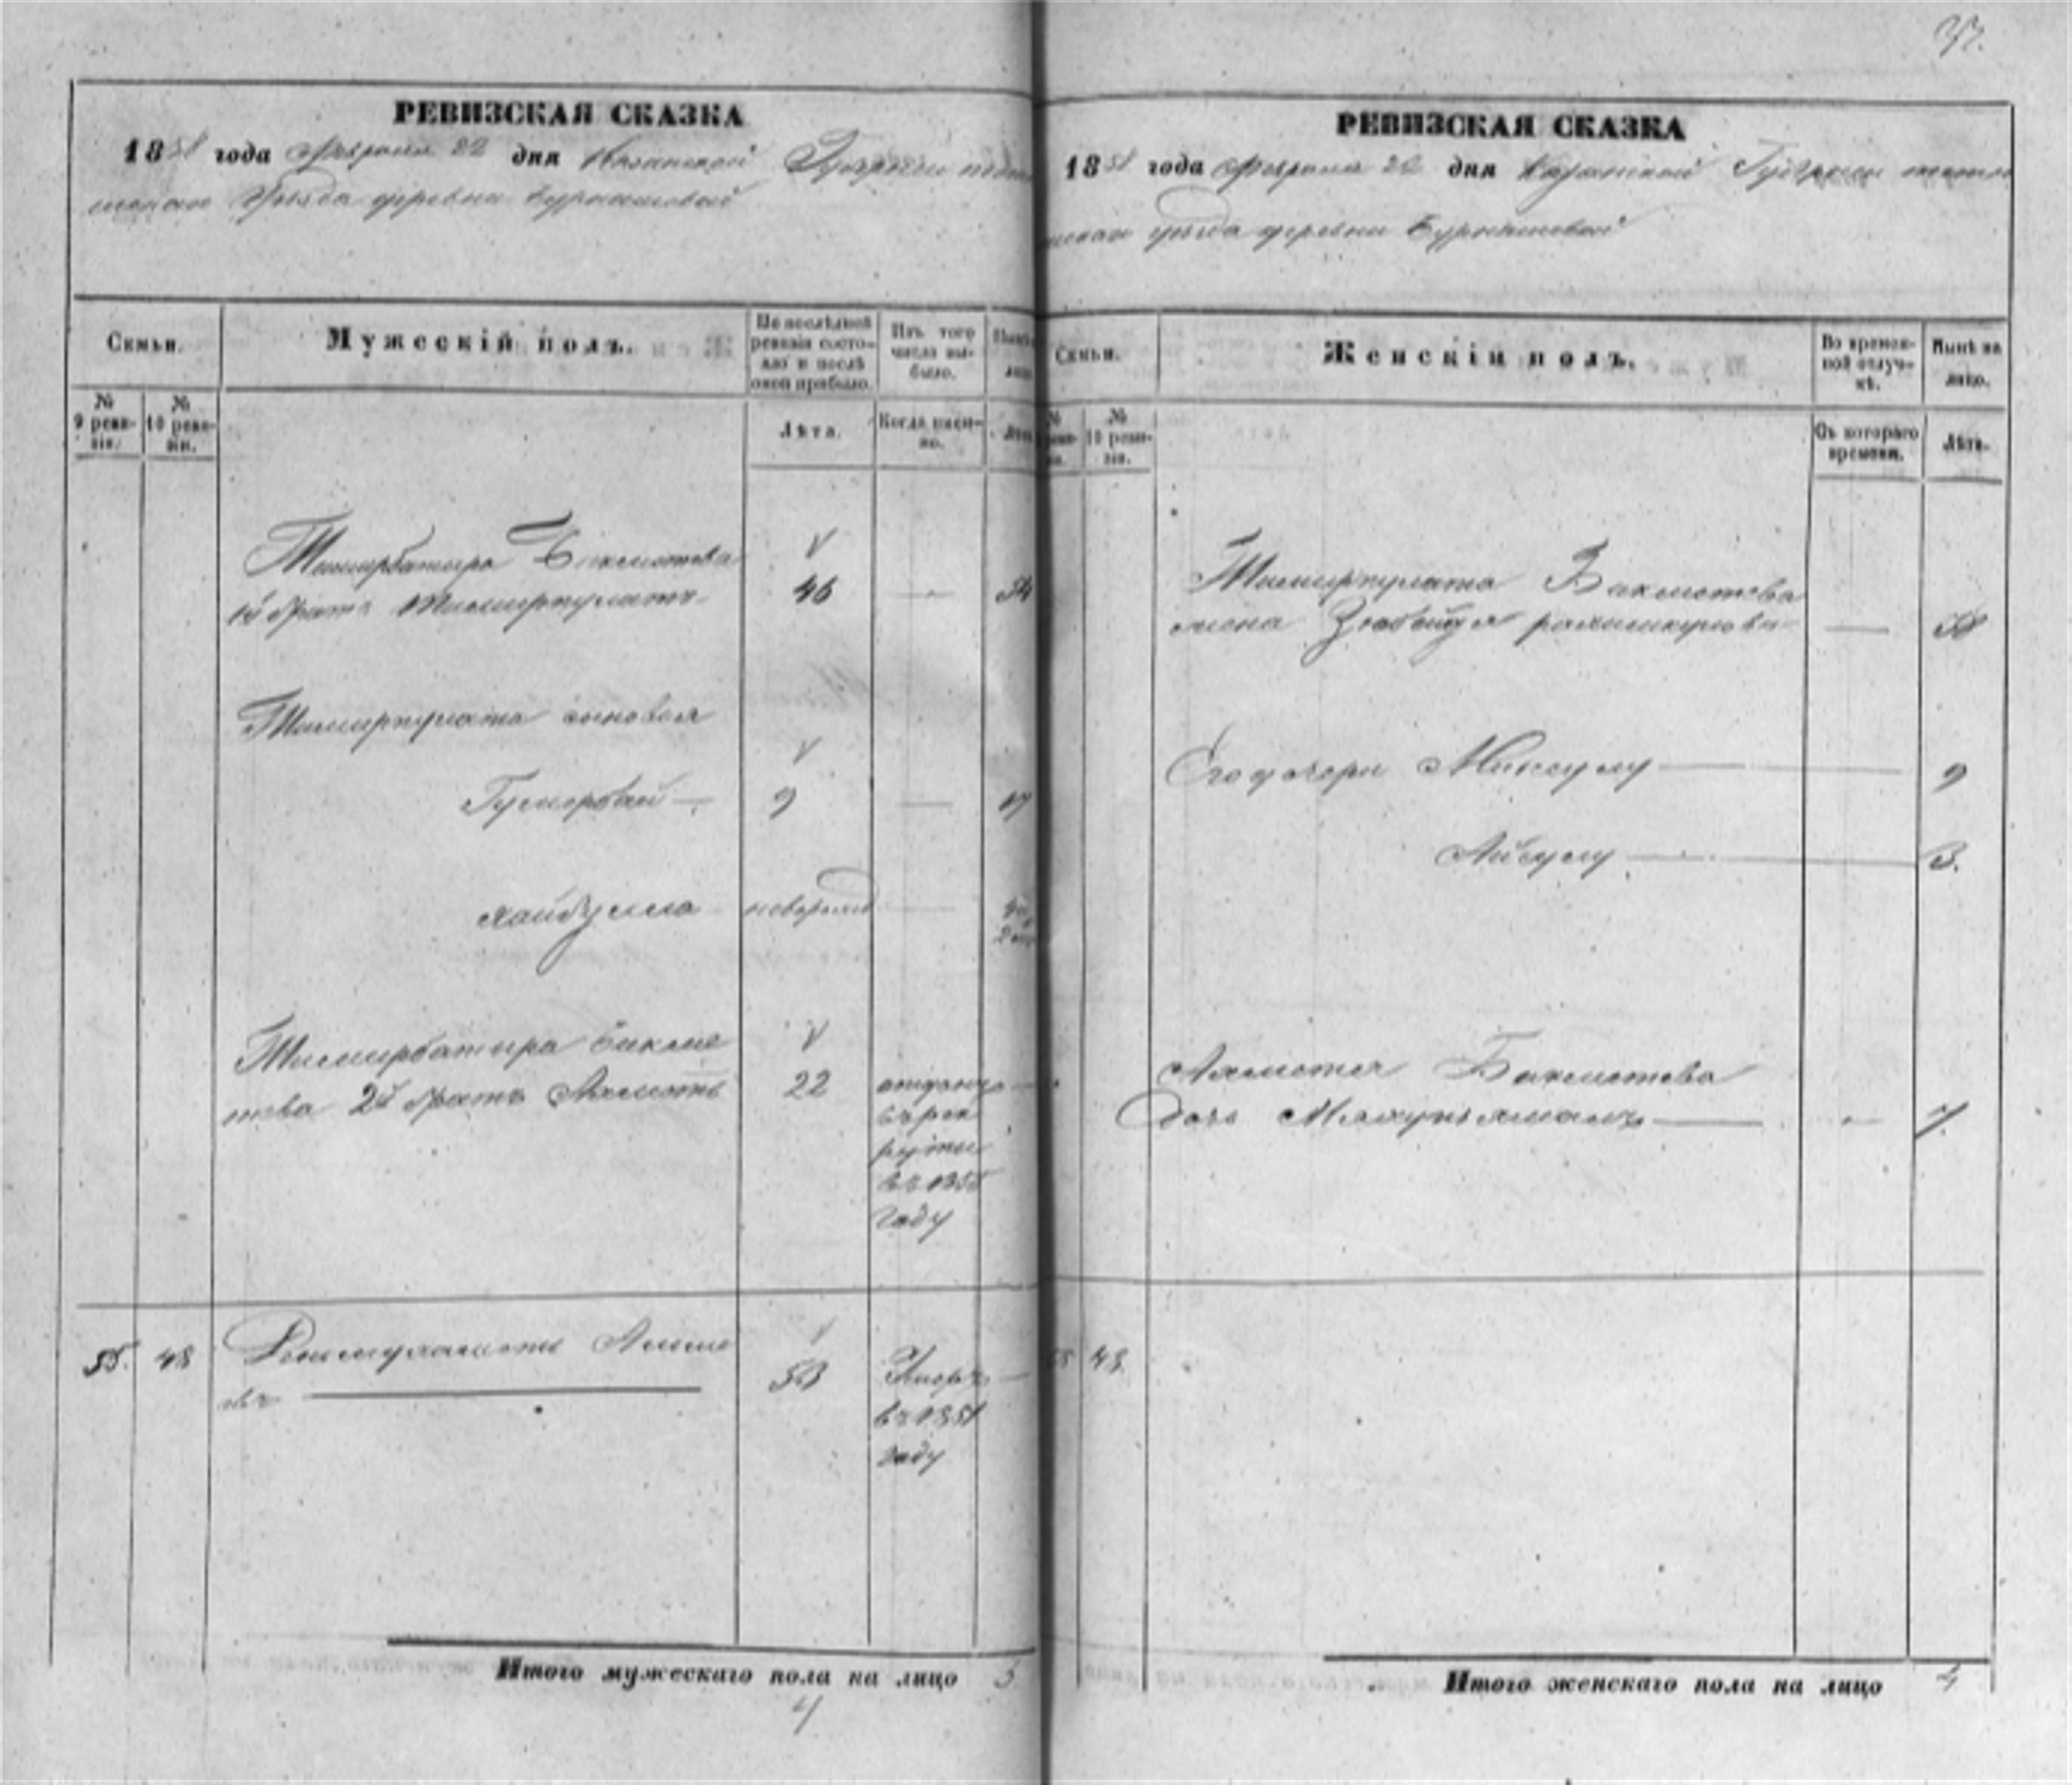 37.
РЕВИЗСКАЯ СКАЗКА
1858 года Февраля 22 дня Казанской Губернии
уезда деревни Бурнашевой
Семьи.
Мужескій полъ.
По послѣдней ревизіи состояло и послѣ оной прибыло.
Изъ того числа выбыло.
№ 9 ревизіи.
№ 10 ревизіи.
Лѣта.
Когда именно.
Тимирбатыра Бикметева
1й братъ Тимирпулатъ
46
54
Тимирпулата сыновья
Гумербай
9
17
Хайбулла
новорожд
Тимирбатыра Бикме
тева 2й братъ Ахметъ
22
отданъ
въ рек
руты
въ 1855
году
55.
48
Алше
евъ
53
Умеръ
въ 1851
году
Итого мужескаго пола на лицо 3
4
РЕВИЗСКАЯ СКАЗКА
1858 года Февраля 22 дня Казанской Губернии
уезда деревни Бурнашевой
Семьи.
Женскій полъ.
Во временной отлучкѣ.
Нынѣ на лицо.
№ 10 ревизіи.
Съ котораго времени.
Лѣта.
Тимирпулата Бикметева
жена Зюбейдя
Его дочери Минсулу
9
Айсулу
3.
Ахметя Бикметева
дочь
7.
48.
Итого женскаго пола на лицо 4